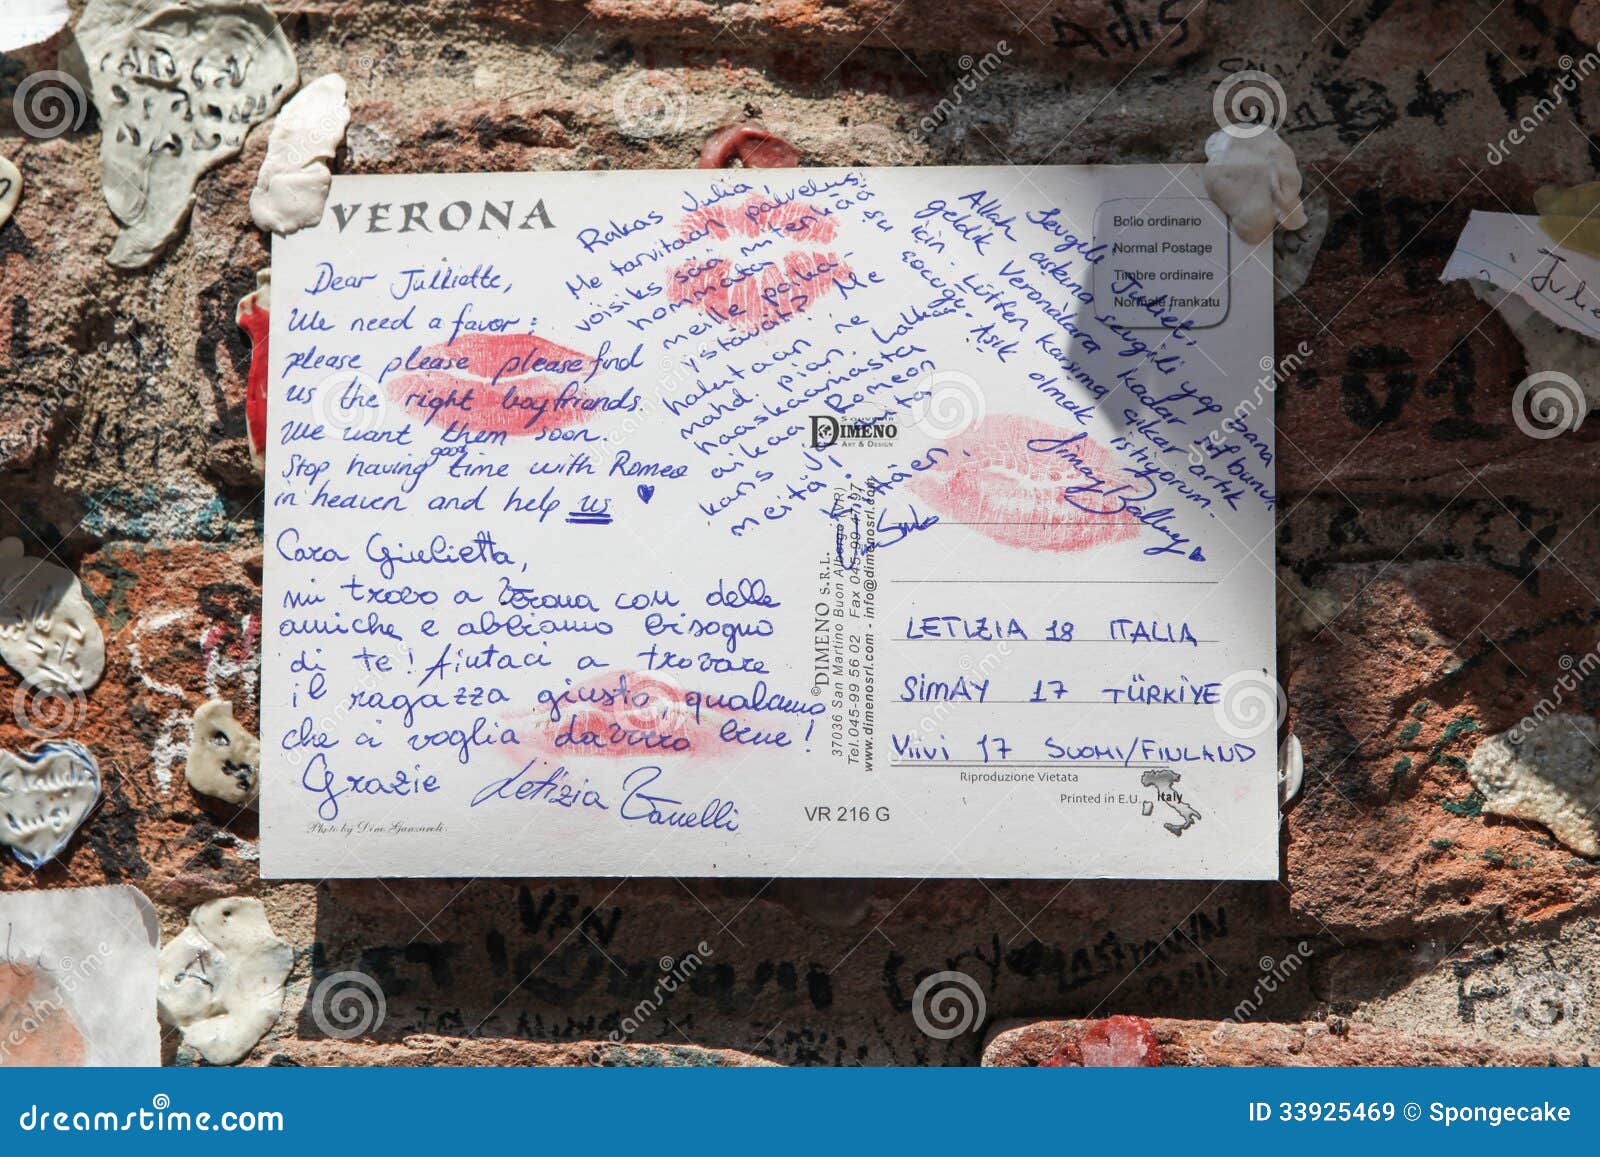 VERONA
Dear Julliette,
We need a favor:
please please please find
us the right boyfriends.
We want them soon.
Stop having good time with Romeo
in heaven and help us
Cara Giulietta,
mi trovo a Verona con delle
amiche e abbiamo bisogno
di te! Aiutaci a trovare
il ragazza giusto, qualcuno
che ci voglia davvero bene!
Grazie Letizia
Photo by Dino
Rakas Julia
Me tarvitaan palvelus!
voisiks sää miten
hommata
meille poika-
ystävät? Me
halutaan ne
mahd. pian. Lakkaa
haaskaamasta
aikaa Romeon
kans ja auta
meitä
Sevgili Juliet,
Allah aşkına sevgili yap bana
geldik Verona'lara kadar sırf bunun
için. Lütfen karşıma çıkar artık
çocuğu. Aşık olmak istiyorum.
Simay
Bollo ordinario
Normal Postage
Timbre ordinaire
Normale frankatu
SOUVENIR
DIMENO
ART & DESIGN
©DIMENO S.R.L.
37036 San Martino Buon Albergo (VR)
Tel.045-99 56 02 Fax 045-99 47 97
www.dimenosrl.com - info@dimenosrl.com
LETIZIA 18 ITALIA
SIMAY 17 TÜRKİYE
Viivi 17 SUOMI/FINLAND
Riproduzione Vietata
Printed in E.U.
Italy
VR 216 G
Adis
dreamstime.com
ID 33925469 © Spongecake